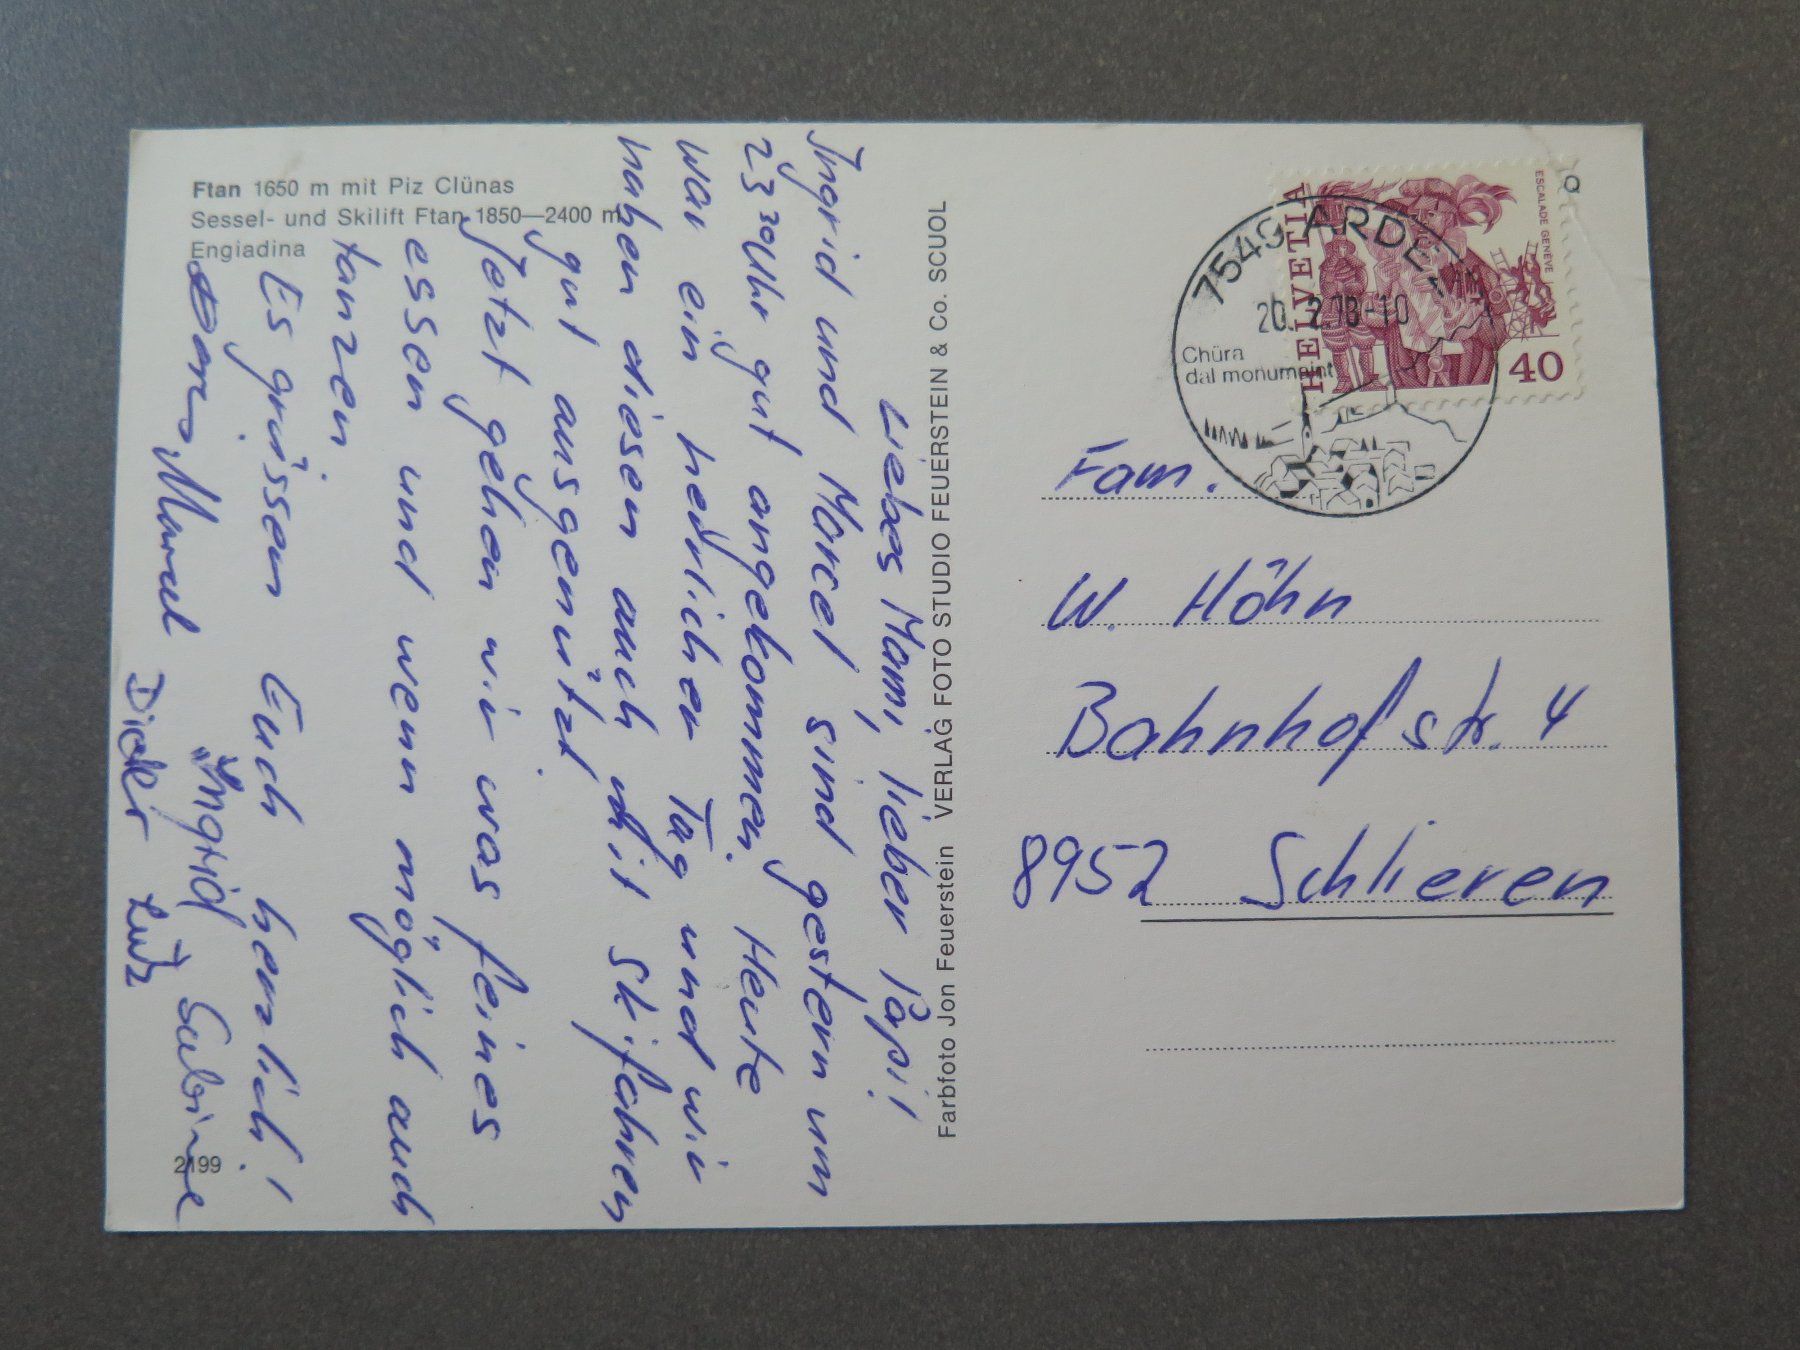 Ftan 1650 m mit Piz Clünas
Sessel- und Skilift Ftan 1850—2400 m
Engiadina
Liebes Mami, lieber Papi!
Ingrid und Marcel sind gestern um
23³⁰ Uhr gut angekommen. Heute
war ein herrlicher Tag und wir
haben diesen auch mit Skifahren
gut ausgenützt.
Jetzt gehen wir was feines
essen und wenn möglich auch
tanzen.
Es grüssen Euch herzlich!
Marcel Ingrid Sabine
Lutz
2199
Farbfoto Jon Feuerstein VERLAG FOTO STUDIO FEUERSTEIN & Co. SCUOL
HELVETIA
ESCALADE GENÈVE
40
7549 ARDEZ
20. 2.78-10
Chüra
dal monumaint
Fam.
W. Höhn
Bahnhofstr. 4
8952 Schlieren